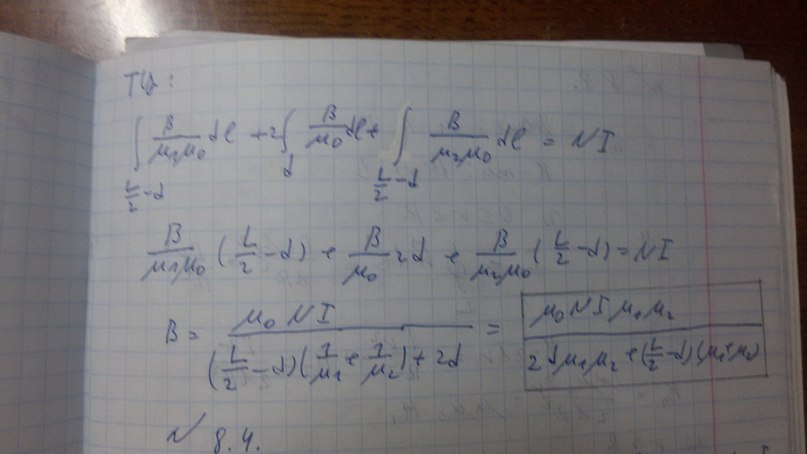 ТЦ:
∫_{L/2-d} B/(μ₁μ₀) dl + 2∫_d B/μ₀ dl + ∫_{L/2-d} B/(μ₂μ₀) dl = NI
B/(μ₁μ₀) (L/2 - d) + B/μ₀ 2d + B/(μ₂μ₀) (L/2 - d) = NI
B = μ₀NI/((L/2 - d)(1/μ₁ + 1/μ₂) + 2d) = μ₀NIμ₁μ₂/(2dμ₁μ₂ + (L/2 - d)(μ₁+μ₂))
N 8.4.